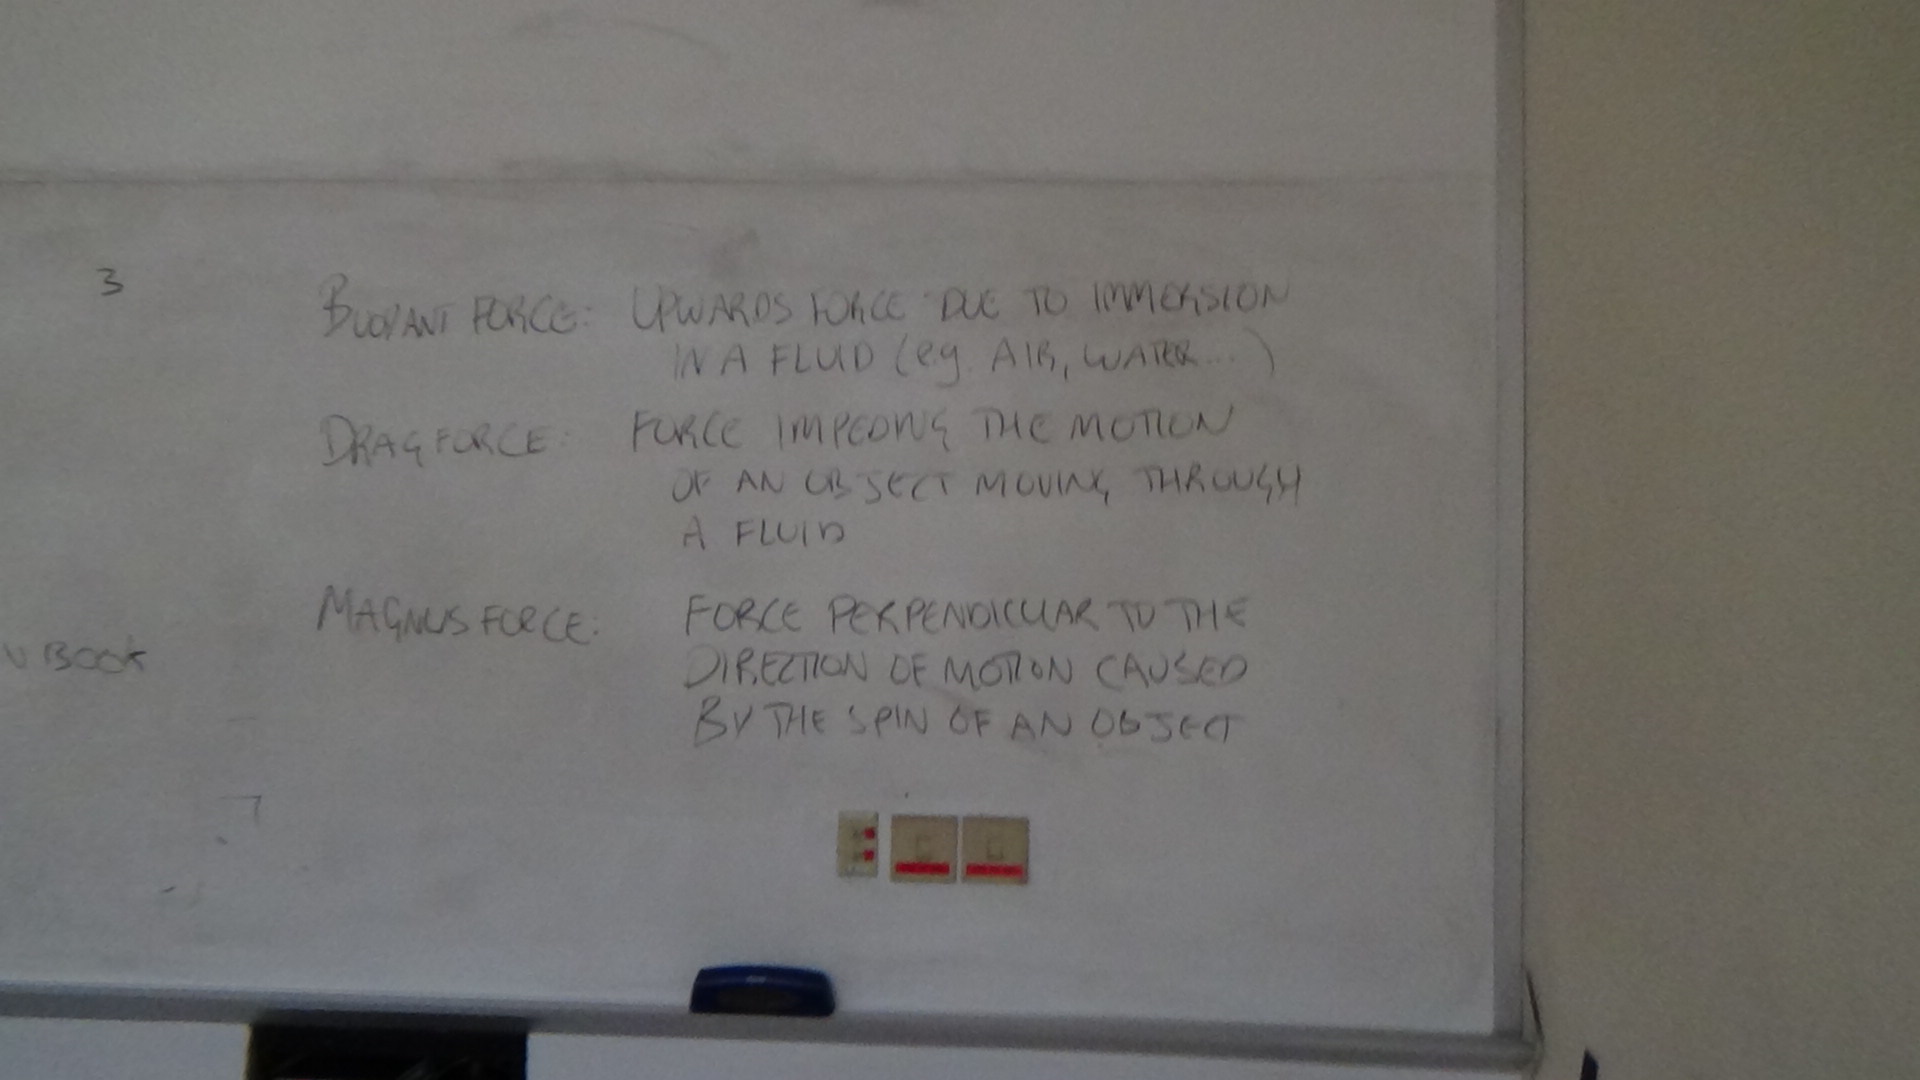 3
BUOYANT FORCE: UPWARDS FORCE DUE TO IMMERSION
IN A FLUID (e.g. AIR, WATER...)
DRAG FORCE: FORCE IMPEDING THE MOTION
OF AN OBJECT MOVING THROUGH
A FLUID
MAGNUS FORCE: FORCE PERPENDICULAR TO THE
DIRECTION OF MOTION CAUSED
BY THE SPIN OF AN OBJECT
BOOK